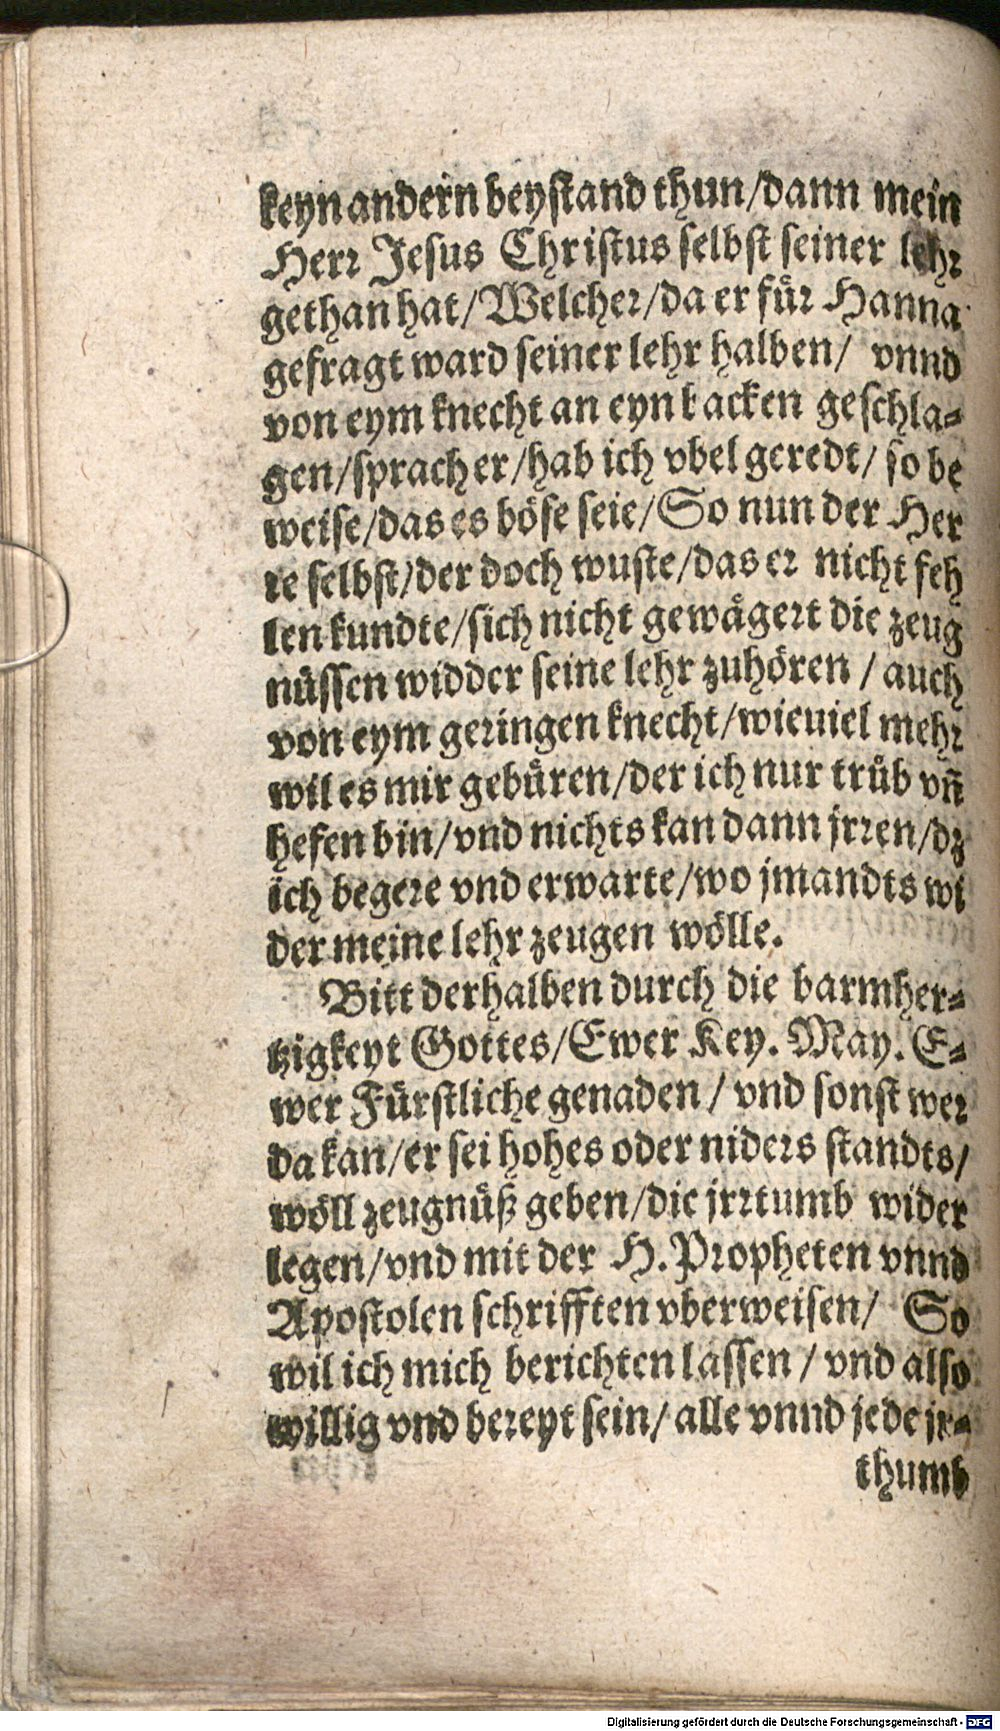 keyn andern beystand thun/dann mein
Herr Jesus Christus selbst seiner lehr
gethan hat/Welcher/da er für Hanna
gefragt ward seiner lehr halben/ vnnd
von eym knecht an eyn backen geschla-
gen/sprach er/hab ich vbel geredt/ so be
weise/das es böse seie/So nun der Her
re selbst/der doch wuste/das er nicht feh
len kundte/sich nicht gewägert die zeug
nüssen widder seine lehr zuhören / auch
von eym geringen knecht/wieuiel mehr
wil es mir gebüren/der ich nur trüb vñ
hefen bin/vnd nichts kan dann jrren/dz
ich begere vnd erwarte/wo jmandts wi
der meine lehr zeugen wölle.
Bitt derhalben durch die barmher-
tzigkeyt Gottes/Ewer Key. May. E-
wer Fürstliche genaden / vnd sonst wer
da kan/er sei hohes oder niders standts/
wöll zeugnüß geben/die jrrtumb wider
legen/vnd mit der H. Propheten vnnd
Apostolen schrifften vberweisen/ So
wil ich mich berichten lassen / vnd also
willig vnd bereyt sein/ alle vnnd jede jr-
thumb
Digitalisierung gefördert durch die Deutsche Forschungsgemeinschaft - DFG